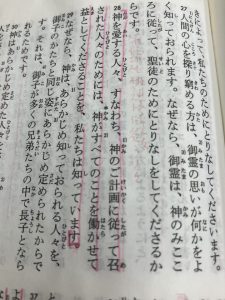 きによって、私たちのためにとりなしてくださいます。
27 人間の心を探り窮める方は、御霊の思いが何かをよ
く知っておられます。なぜなら、御霊は、神のみここ
ろに従って、聖徒のためにとりなしをしてくださるか
らです。
28 神を愛する人々、すなわち、神のご計画に従って召
された人々のためには、神がすべてのことを働かせて
益としてくださることを、私たちは知っています。
29 なぜなら、神は、あらかじめ知っておられる人々を、
御子のかたちと同じ姿にあらかじめ定められたからで
す。それは、御子が多くの兄弟たちの中で長子となら
れるためです。
30 神はあらかじめ定めた人々を